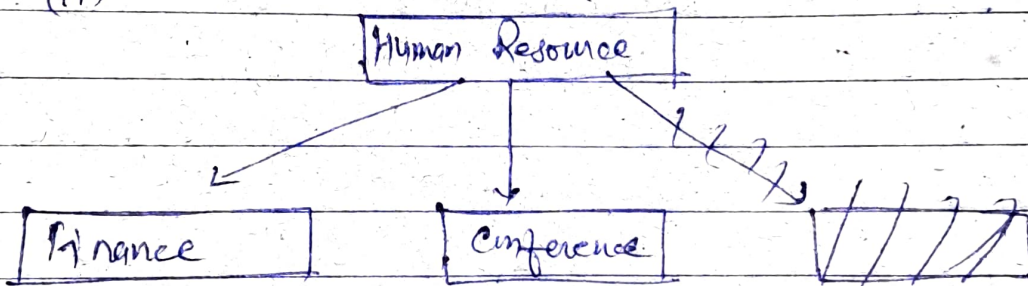 Human Resource
Finance
Conference